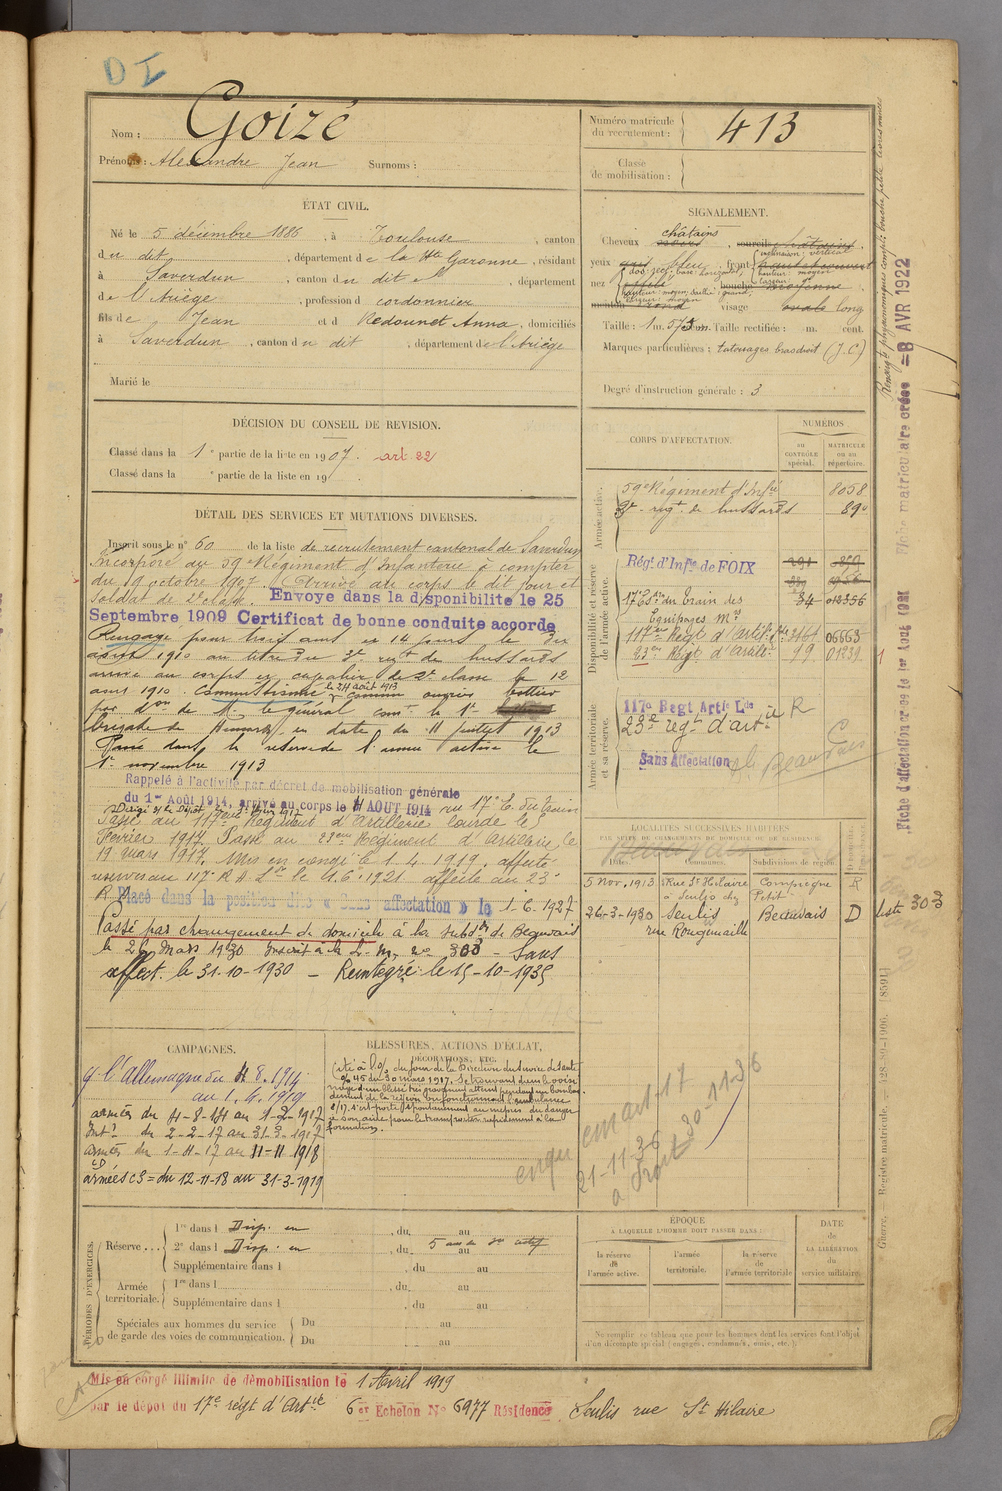 D I
Nom : Goizé
Prénoms : Alexandre Jean Surnoms :
Numéro matricule
du recrutement : 413
Classe
de mobilisation :
ÉTAT CIVIL.
Né le 5 décembre 1886, à Toulouse, canton
du dit, département de la Hte Garonne, résidant
à Saverdun, canton du dit, département
de l'Ariège, profession de cordonnier
fils de Jean et de Redounet Anna, domiciliés
à Saverdun, canton du dit, département de l'Ariège
Marié le
SIGNALEMENT.
châtains
Cheveux , sourcils châtains,
yeux bleu, front
inclinaison, vertical
hauteur : moyen
nez dos : rect. base : horizontal, bouche moyenne,
hauteur : moyen, saillie : grand,
largeur : moyen
menton rond visage ovale long
Taille : 1 m. 575 Taille rectifiée : m. cent.
Marques particulières : tatouages bras droit (J.C)
Degré d'instruction générale : 3
DÉCISION DU CONSEIL DE REVISION.
Classé dans la 1e partie de la liste en 1907. art 22
Classé dans la e partie de la liste en 19
DÉTAIL DES SERVICES ET MUTATIONS DIVERSES.
Inscrit sous le n° 60 de la liste de recrutement cantonal de Saverdun
Incorporé au 59e Régiment d'Infanterie à compter
du 19 octobre 1907. Arrivé au corps le dit jour et
Soldat de 2e classe. Envoye dans la disponibilité le 25
Septembre 1909 Certificat de bonne conduite accorde
Rengagé pour trois ans le
août 1910 au titre du 3e regt de hussards
arrivé au corps en capacité de 2e classe le 12
août 1910. Commissionné le 24 août 1913 comme ouvrier bottier
par don de Mr le général comt la 1e
brigade de hussards en date du 11 juillet 1913
Passé dans la réserve de l'armée active le
1er novembre 1913
Rappelé à l'activité par décret de mobilisation générale
du 1er Août 1914, arrivé au corps le 4 AOUT 1914 au 17e E. du train
Passé au 117eme Régiment d'Artillerie lourde le
Février 1917. Passé au 23eme Régiment d'Artillerie le
19 mars 1917. Mis en congé le 1.4.1919, affecté
réserve au 117e R A Lde le 1.6.1921 affecté au 23e
R Placé dans la position dite « Sans affectation » le 1-6-1927
Passé par changement de domicile à la subdon de Beauvais
le 26 Mars 1930 Inscrit à la L. M. n° 303 - Sans
affect. le 31-10-1930 - Reintegré le 15-10-1935
CORPS D'AFFECTATION.
NUMÉROS
AU
CONTRÔLE
spécial.
MATRICULE
ou au
répertoire.
Armée active.
59e Régiment d'Infie 8058
3e regt de hussards 890
Disponibilité et réserve
de l'armée active.
Régt d'Infie de FOIX
17e Esdon du Train des 34 012356
Équipages Mres
117eme Regt d'Artill. 06663
23eme Regt d'Artille 99 01239
Armée territoriale
et sa réserve.
117e Regt Artie Lde
23e regt d'artie R
Sans Affectation
Beauvais
LOCALITÉS SUCCESSIVES HABITÉES
PAR SUITE DE CHANGEMENTS DE DOMICILE OU DE RÉSIDENCE.
Dates. Communes. Subdivisions de région.
5 Nov. 1913 Rue St Hilaire Compiègne R
à Senlis chez Petit
26-3-1930 Senlis Beauvais D liste 303
rue Rougemaille
CAMPAGNES.
c. l'Allemagne du 4.8.1914
au 1.4.1919
armées du 4-8-14 au 1-2-1917
Intr du 2-2-17 au 31-3-1917
armées du 1-4-17 au 11-11-1918
CD
armées c3 = du 12-11-18 au 31-3-1919
BLESSURES, ACTIONS D'ÉCLAT,
DÉCORATIONS, ETC.
Cité à l'o/ du jour de la Direction du Service de santé
n° 45 du 30 mars 1917. Se trouvant dans le voisi
nage d'un blessé très gravement atteint pendant un bombar
dement de la région où fonctionnait l'ambulance
8/17. s'est porté spontanément au mépris du danger
à son aide pour le transporter rapidement à la
formation.
21-11-36
30-11-36
PÉRIODES D'EXERCICES.
Réserve ... 1re dans l Disp. en , du au
2e dans l Disp. en , du au
Supplémentaire dans l , du au
Armée
territoriale. 1re dans l , du au
Supplémentaire dans l , du au
Spéciales aux hommes du service
de garde des voies de communication. Du au
Du au
ÉPOQUE
À LAQUELLE L'HOMME DOIT PASSER DANS :
la réserve
de
l'armée active.
l'armée
territoriale.
la réserve
de
l'armée territoriale
DATE
de
LA LIBÉRATION
du
service militaire.
Ne remplir ce tableau que pour les hommes dont les services font l'objet
d'un décompte spécial (engagés, condamnés, omis, etc.).
Mis en congé illimité de démobilisation le 1 Avril 1919
par le dépôt du 17e régt d'Artie 6er Echelon No 6977 Résidence Senlis rue St Hilaire
Fiche matriculaire créée = 8 AVR 1922
Fiche d'affectation créée le 1er Août 1921
Guerre. Registre matricule. — 128-80-1906. [8591]